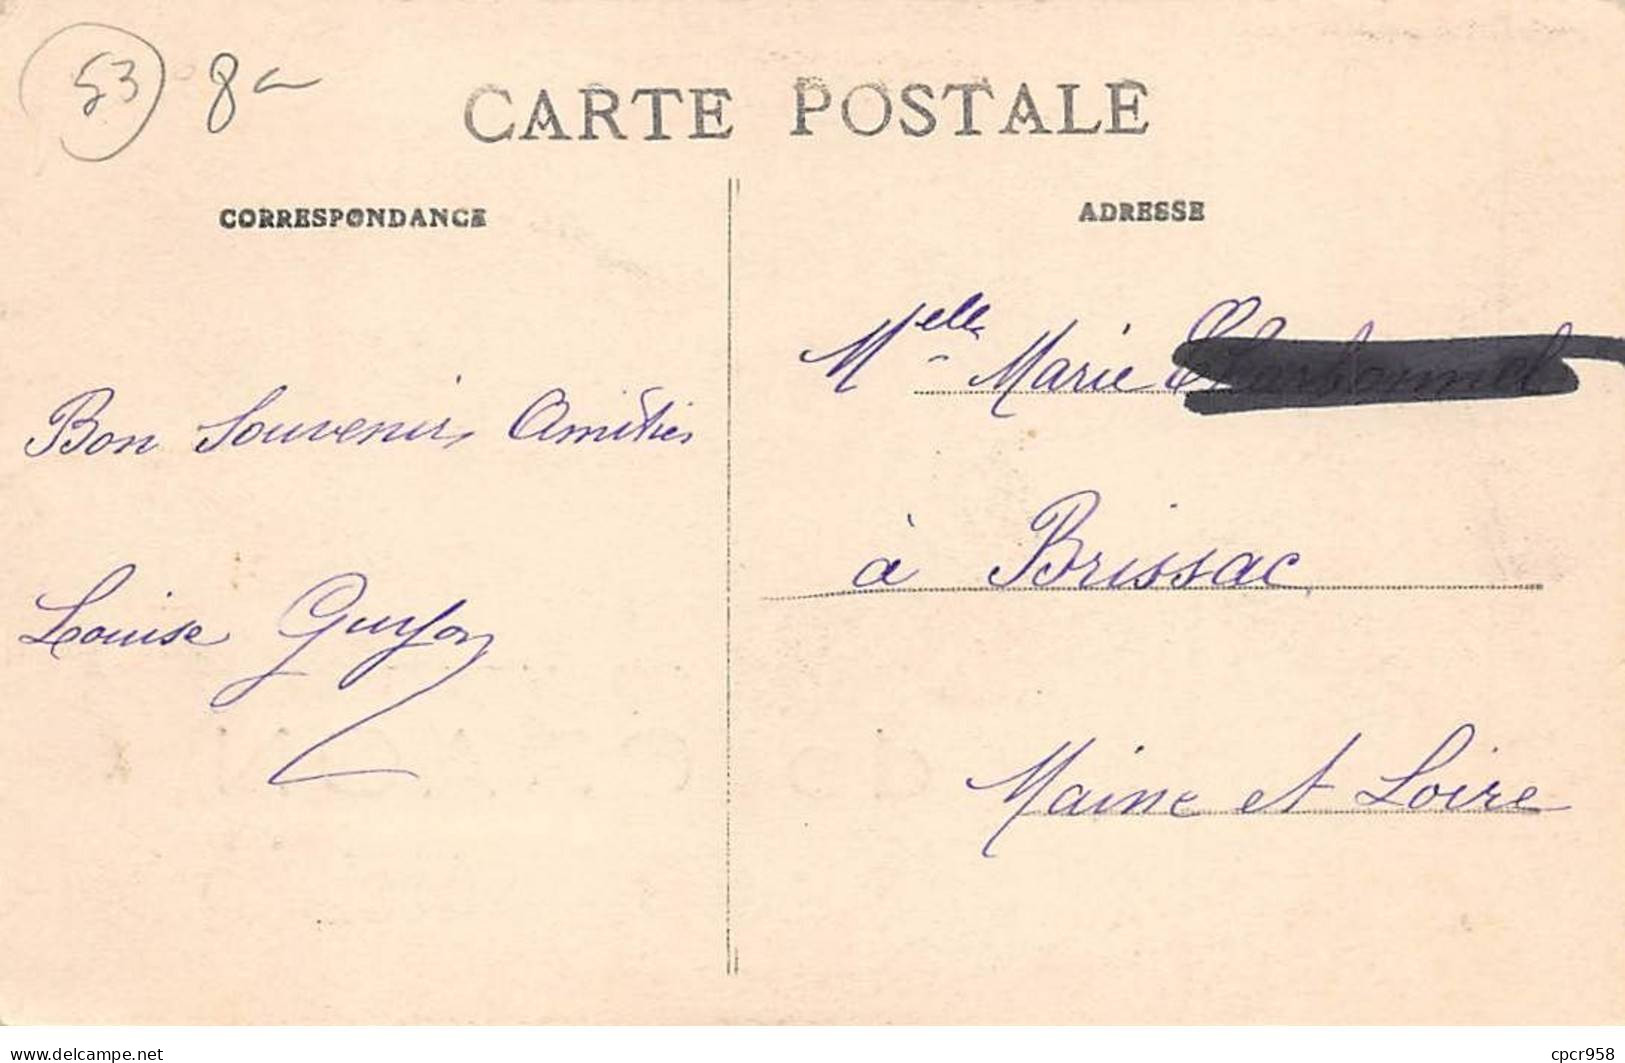 53 8
CARTE POSTALE
CORRESPONDANCE
ADRESSE
Bon Souvenir, Amitiés
Louise Guyon
Melle Marie
à Brissac
Maine et Loire
delcampe.net
cpcr958